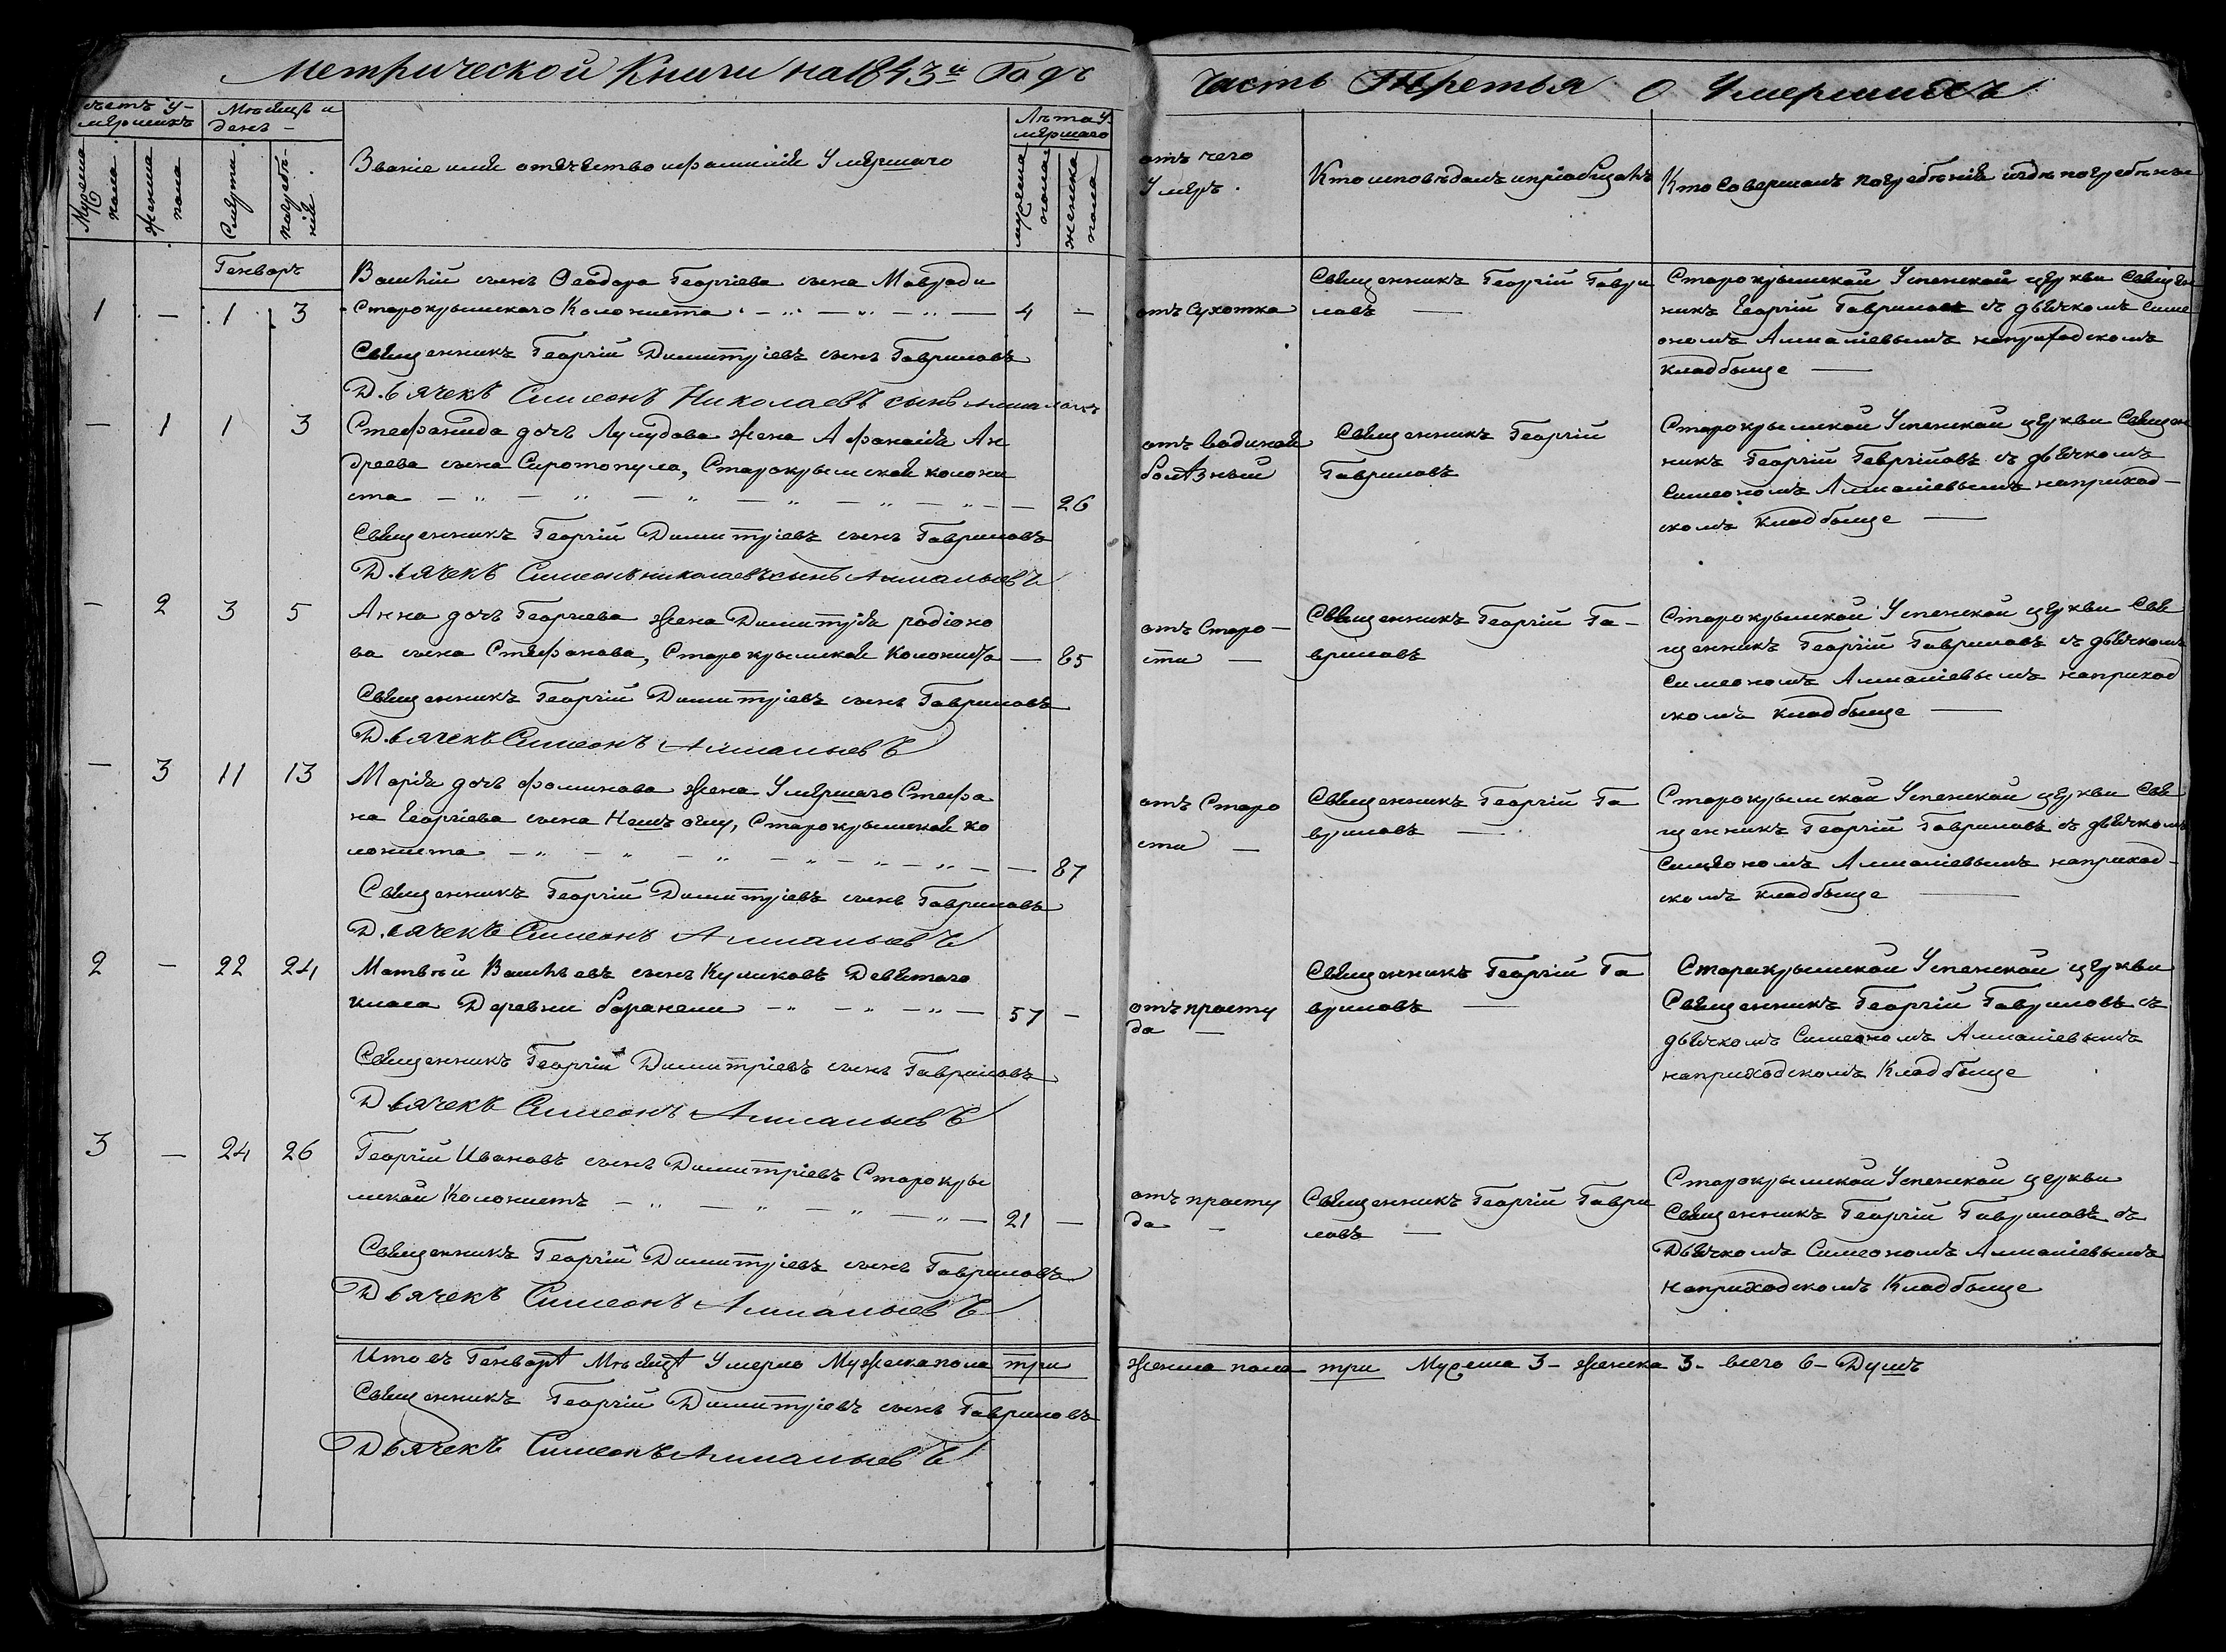 Метрической Книги на 1843й Годъ
Часть Третья о Умершихъ
Счетъ У-
мершихъ
Мѣсяцъ и
день
Званіе имя отечество и фамилія Умершаго
Лѣта У-
мершаго
Мужеска
пола
Женска
пола
Смерти
погребѣ-
нія
мужеска
пола
женска
пола
отъ чего
Умеръ
Кто исповѣдалъ и пріобщалъ
Кто Совершалъ погребѣніе и гдѣ погребѣны
Генваръ
1 — 1 3
Василій сынъ Ѳеодора Георгіева сына Мавроди
Старокрымскаго Колониста — 4 —
Священникъ Георгій Димитріевъ сынъ Гавриловъ
Дьячекъ Симеонъ Николаевъ сынъ
отъ Сухотка
Священникъ Георгій Гаври
ловъ —
Старокрымской Успенской церкви Священ
никъ Георгій Гавриловъ съ дьячкомъ Симе
ономъ Ananіевымъ на приходскомъ
кладбище —
— 1 1 3
Стефанида дочь Лулудова жена Афанасія Ан
дреева сына Сиротопуло, Старокрымской колони
ста — — 26
Священникъ Георгій Димитріевъ сынъ Гавриловъ
Дьячекъ Симеонъ николаевъ сынъ Ананьевъ
отъ водиной
болѣзный
Священникъ Георгій
Гавриловъ
Старокрымской Успенской церкви Священ
никъ Георгій Гавриловъ съ дьячкомъ
Симеономъ Ананіевымъ на приход-
скомъ кладбище —
— 2 3 5
Анна дочь Георгиева жена Димитрія родіоно
ва сына Стефанова, Старокрымской Колониста — 85
Священникъ Георгій Димитріевъ сынъ Гавриловъ
Дьячекъ Симеонъ Ананьевъ
отъ Старо-
сти —
Священникъ Георгій Га-
вриловъ
Старокрымской Успенской церкви Свя
щенникъ Георгій Гавриловъ съ дьячкомъ
Симеономъ Ананіевымъ на приход
скомъ кладбище —
— 3 11 13
Марія дочь фоминова жена Умершаго Стефа
на Георгіева сына, Старокрымской ко
лониста — — 87
Священникъ Георгій Димитріевъ сынъ Гавриловъ
Дьячекъ Симеонъ Ананьевъ
отъ Старо
сти —
Священникъ Георгій Га
вриловъ —
Старокрымской Успенской церкви Свя
щенникъ Георгій Гавриловъ съ дьячкомъ
Симеономъ Ананіевымъ на приход-
скомъ кладбище —
2 — 22 24
Матвѣй Васильевъ сынъ Куликовъ Девятаго
класа Деревни — 57 —
Священникъ Георгій Димитріевъ сынъ Гавриловъ
Дьячекъ Симеонъ Ананьевъ
отъ просту
да —
Священникъ Георгій Га
вриловъ —
Старокрымской Успенской церкви
Священникъ Георгій Гавриловъ съ
дьячкомъ Симеономъ Ананіевымъ
на приходскомъ Кладбище
3 — 24 26
Георгій Ивановъ сынъ Димитріевъ Старокры
мской Колонистъ — 21 —
Священникъ Георгій Димитріевъ сынъ Гавриловъ
Дьячекъ Симеонъ Ананьевъ
отъ просту
да —
Священникъ Георгій Гаври
ловъ —
Старокрымской Успенской церкви
Священникъ Георгій Гавриловъ съ
Дьячкомъ Симеономъ Ананіевымъ
на приходскомъ Кладбище
Итого въ Генварѣ Мѣсяцѣ Умерло Мужеска пола три
женска пола три Мужеска 3 – женска 3 – всего 6 – Душъ
Священникъ Георгій Димитріевъ сынъ Гавриловъ
Дьячекъ Симеонъ Ананьевъ